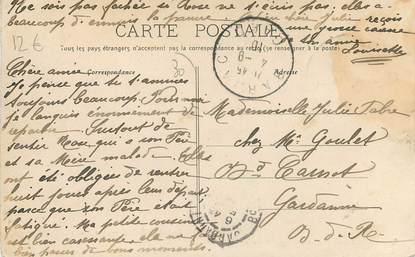 Ne sois pas fachée si Rose ne t'écris pas; elle a
beaucoup d'ennuis la pauvre
chère Julie reçois
une grosse caresse
de ton amie
Louisette
12€
CARTE POSTALE
Tous les pays étrangers n'acceptent pas la correspondance au recto (se renseigner à la poste)
Correspondance
Adresse
Chère amie
Je pense que tu t'amuses
toujours beaucoup. Pour moi
je languis énormément de
repartir. Surtout de
sentir Rose qui a son Père
et sa Mère malade. Elles
ont été obligées de rentrer
huit jours après leur départ
parce que son Père était
fatigué. Ma petite cousine
est bien caressante, elle me fait
passer de bons moments.
Mademoiselle Julie Fabre
chez Mr Goulet
Bd Carnot
Gardanne
B.-d.-R.